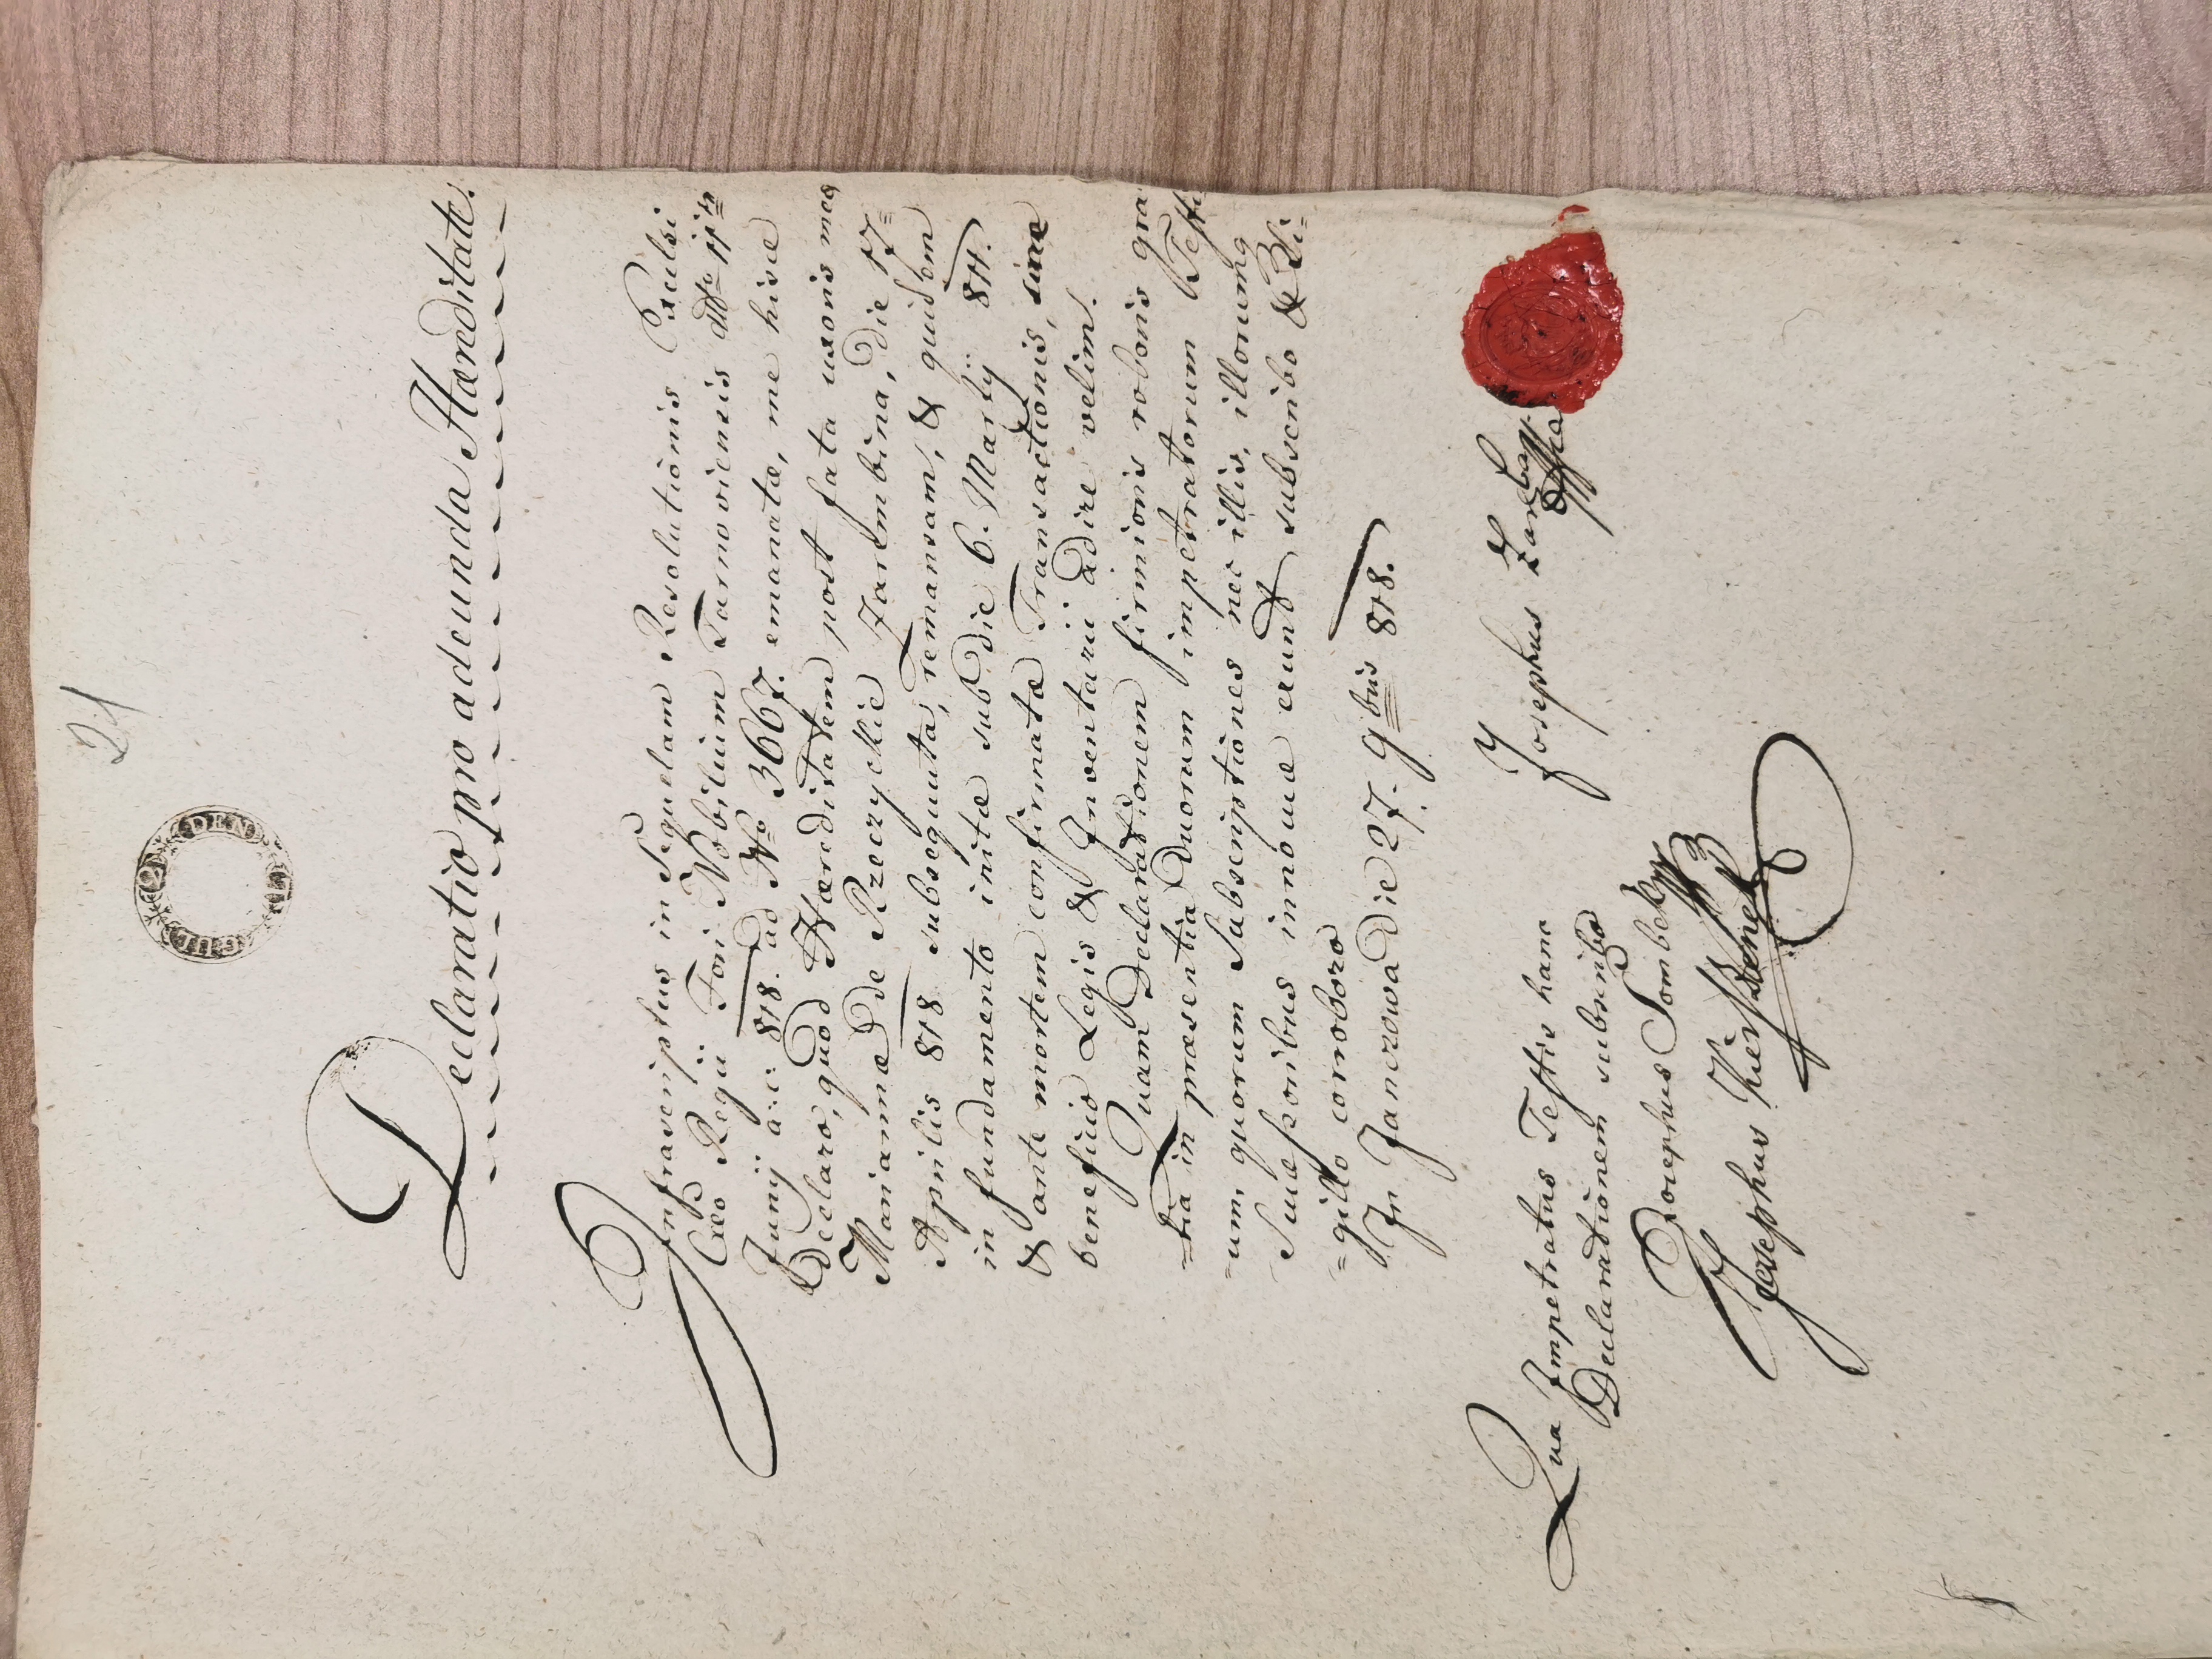 21
Declaratio pro adeunda Hæreditate.
Infrascriptus in Sequelam Resolutionis Excelsi
Cæs Regii Fori Nobilium Tarnoviensis dtto 11
Junij a: c: 818. ad Nro 3667. emanatæ, me hisce
Declaro, quod Hæreditatem post fata uxoris meæ
Mariannæ de Rzeczyckie Zarembina, die 17=
Aprilis 818 subsequuta, remansam, & quidem
in fundamento initæ sub die 6. Martij 811.
& ante mortem confirmatæ Transactionis, sine
beneficio Legis & Inventarii adire velim.
Quam Declarationem firmioris roboris gra
=tia in præsentia Duorum impetratorum Testi
=um, quorum Subscriptiones nec illis, illorumq
Suc poribus innouæ erunt subscribo & Si=
=gillo corroboro
In Janczowa Die 27. 9bris 818.
Josephus Zaremba
Qua Impetratus Testis hanc
Declarationem subscribo
Josephus
Josephus